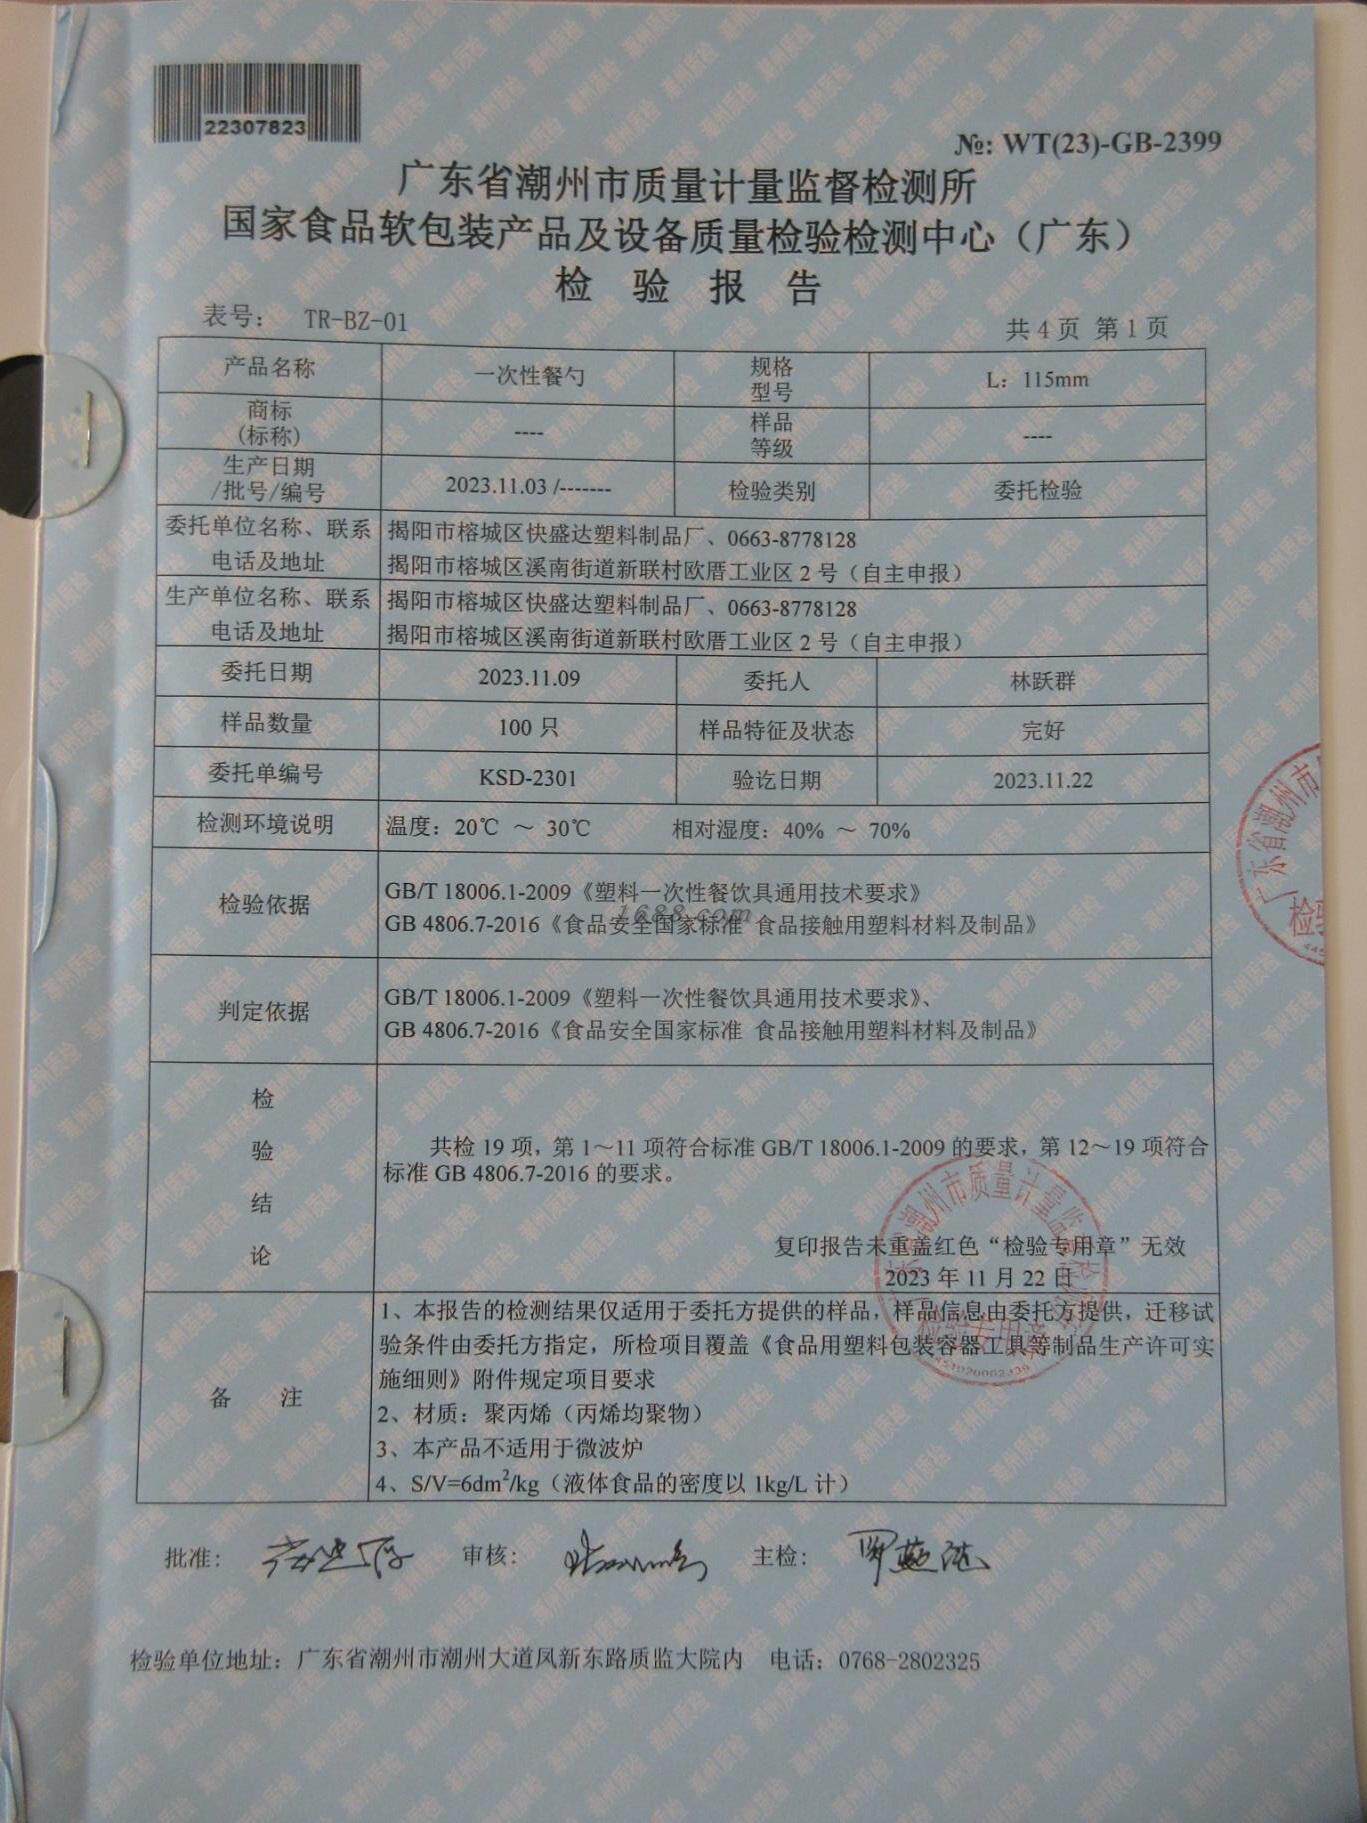 22307823
№: WT(23)-GB-2399
广东省潮州市质量计量监督检测所
国家食品软包装产品及设备质量检验检测中心（广东）
检 验 报 告
表号： TR-BZ-01
共 4 页 第 1 页
产品名称 一次性餐勺 规格型号 L：115mm
商标(标称) ---- 样品等级 ----
生产日期/批号/编号 2023.11.03 /------- 检验类别 委托检验
委托单位名称、联系电话及地址
揭阳市榕城区快盛达塑料制品厂、0663-8778128
揭阳市榕城区溪南街道新联村欧厝工业区 2 号（自主申报）
生产单位名称、联系电话及地址
揭阳市榕城区快盛达塑料制品厂、0663-8778128
揭阳市榕城区溪南街道新联村欧厝工业区 2 号（自主申报）
委托日期 2023.11.09 委托人 林跃群
样品数量 100 只 样品特征及状态 完好
委托单编号 KSD-2301 验讫日期 2023.11.22
检测环境说明 温度：20℃ ～ 30℃ 相对湿度：40% ～ 70%
检验依据
GB/T 18006.1-2009《塑料一次性餐饮具通用技术要求》
1688.com
GB 4806.7-2016《食品安全国家标准 食品接触用塑料材料及制品》
判定依据
GB/T 18006.1-2009《塑料一次性餐饮具通用技术要求》、
GB 4806.7-2016《食品安全国家标准 食品接触用塑料材料及制品》
检验结论
共检 19 项，第 1～11 项符合标准 GB/T 18006.1-2009 的要求，第 12～19 项符合
标准 GB 4806.7-2016 的要求。
复印报告未重盖红色“检验专用章”无效
2023 年 11 月 22 日
备 注
1、本报告的检测结果仅适用于委托方提供的样品，样品信息由委托方提供，迁移试
验条件由委托方指定，所检项目覆盖《食品用塑料包装容器工具等制品生产许可实
施细则》附件规定项目要求
2、材质：聚丙烯（丙烯均聚物）
3、本产品不适用于微波炉
4、S/V=6dm²/kg（液体食品的密度以 1kg/L 计）
批准： 审核： 主检：
检验单位地址：广东省潮州市潮州大道凤新东路质监大院内 电话：0768-2802325